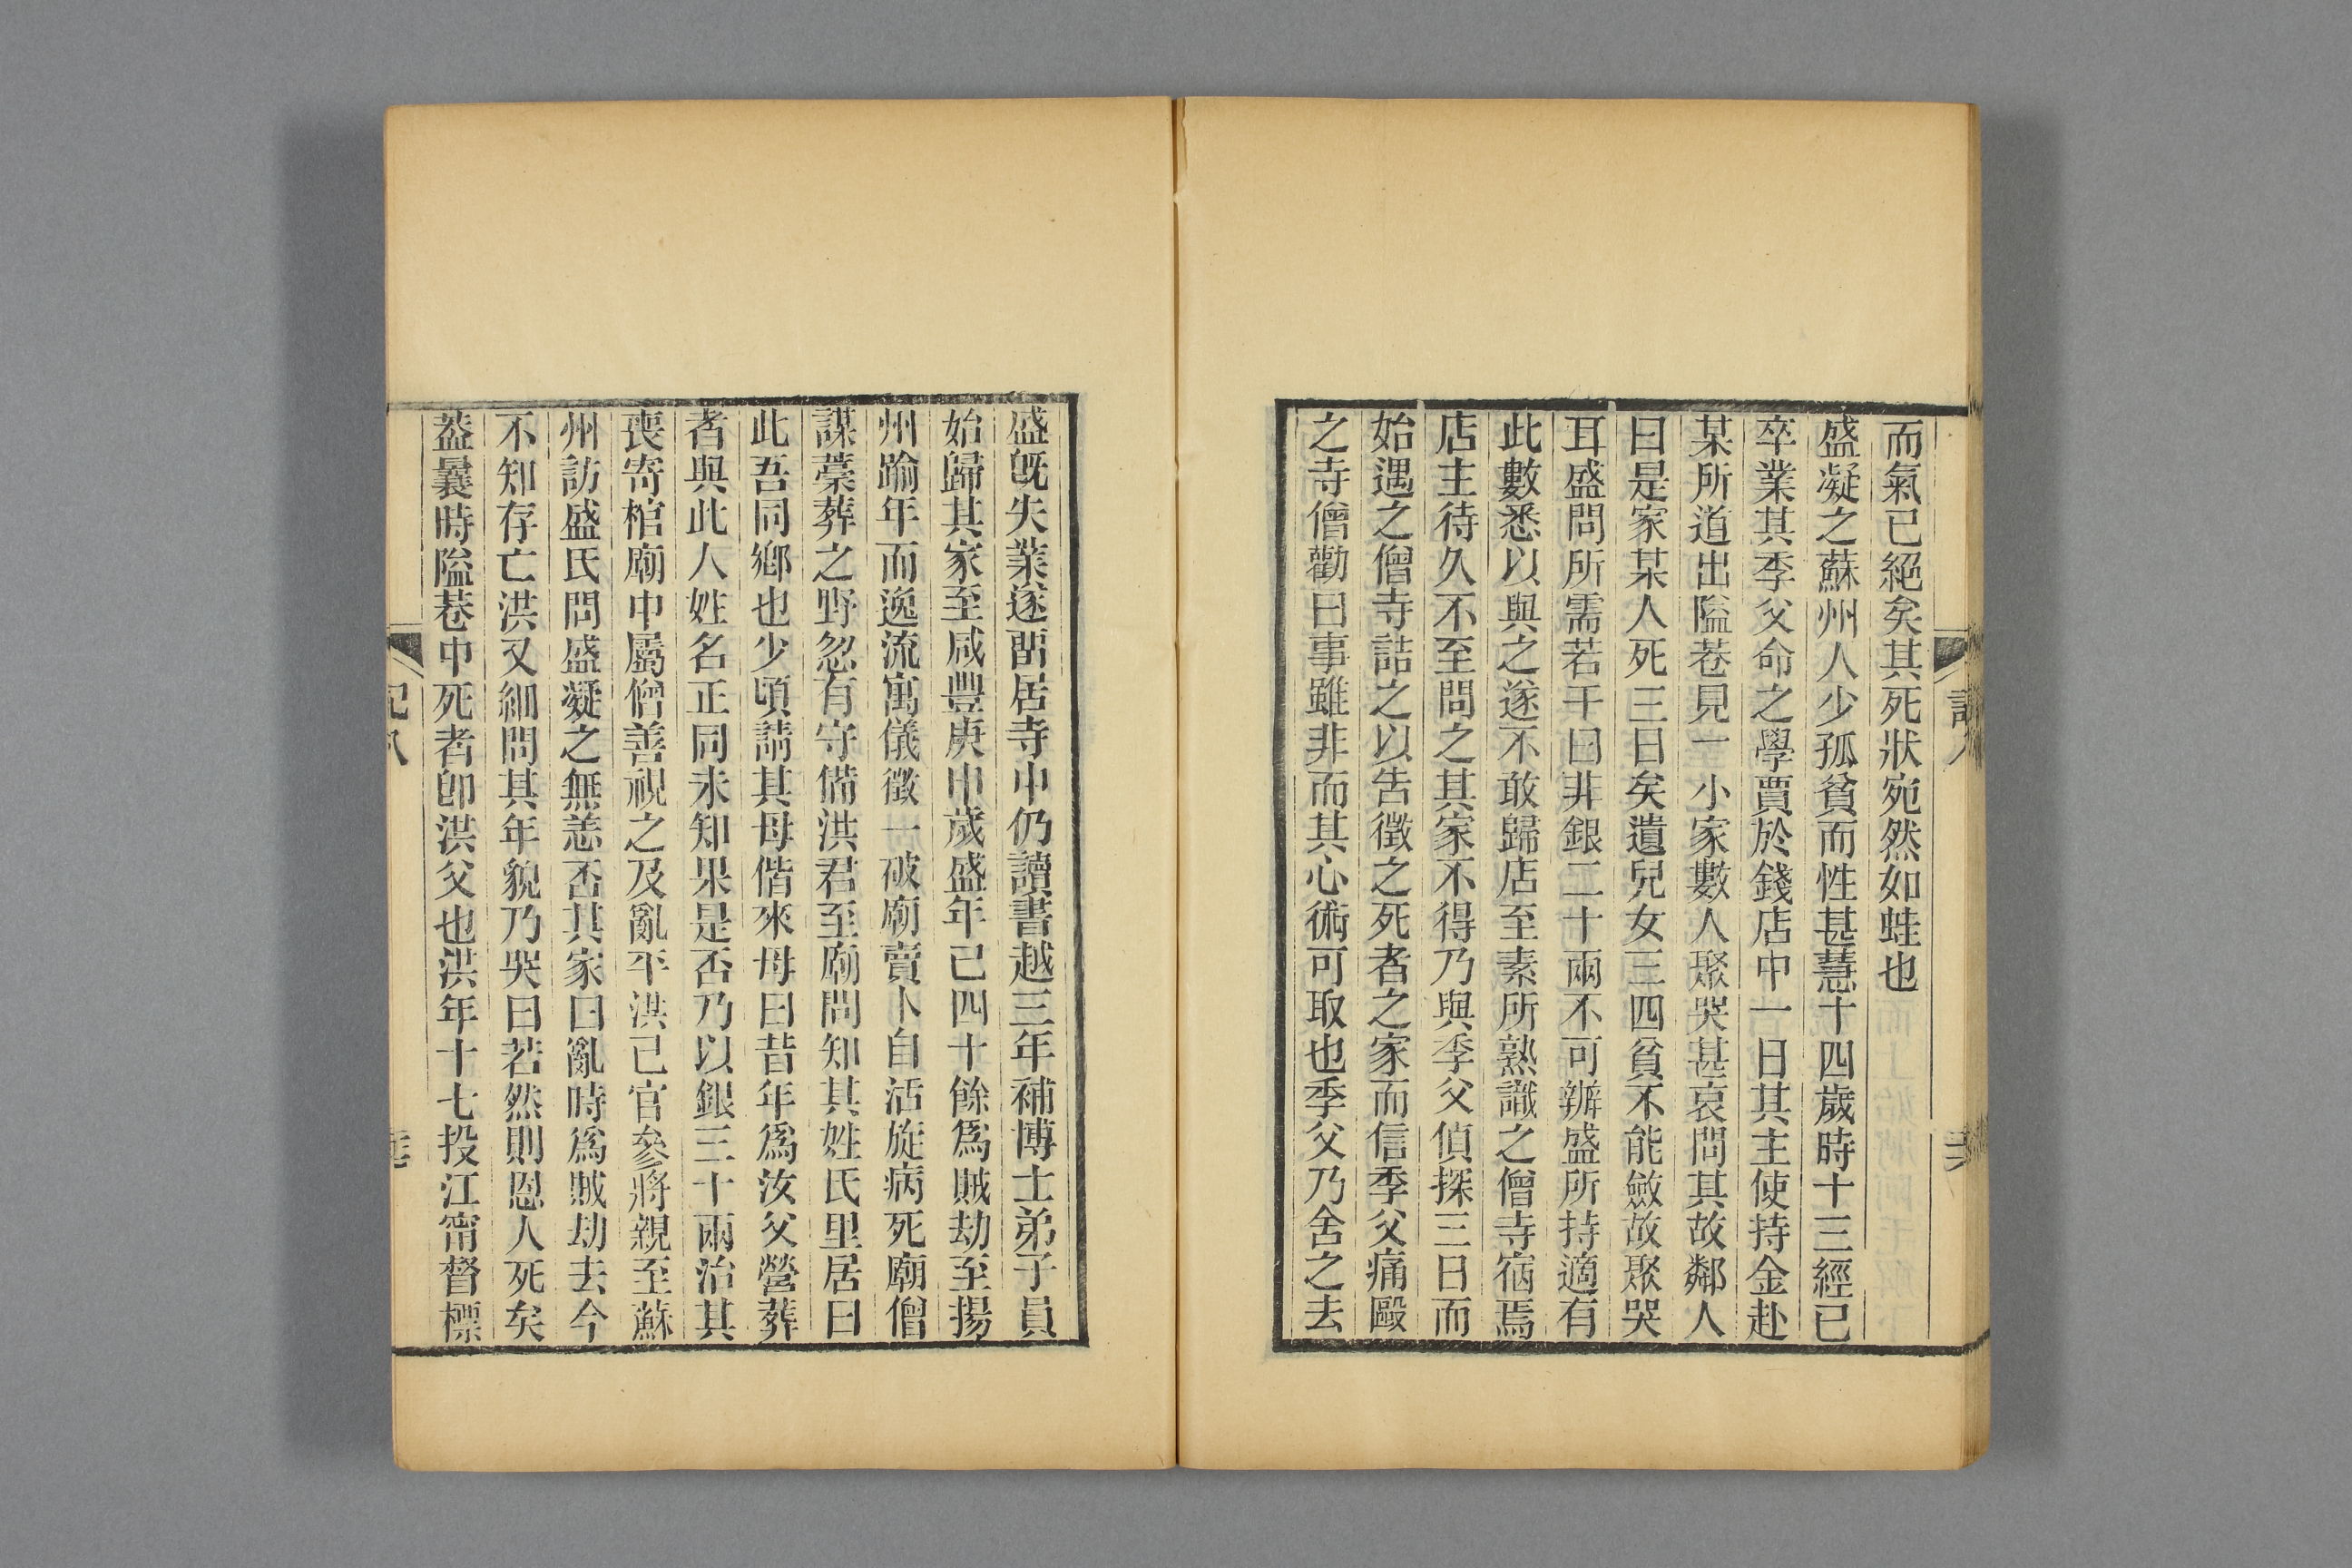 而氣已絕矣其死狀宛然如蛙也
盛凝之蘇州人少孤貧而性甚慧十四歲時十三經已
卒業其季父命之學賈於錢店中一日其主使持金赴
某所道出隘巷見一小家數人聚哭甚哀問其故鄰人
曰是家某人死三日矣遺兒女三四貧不能斂故聚哭
耳盛問所需若干曰非銀二十兩不可辦盛所持適有
此數悉以與之遂不敢歸店至素所熟識之僧寺宿焉
店主待久不至問之其家不得乃與季父偵探三日而
始遇之僧寺詰之以吿徵之死者之家而信季父痛毆
之寺僧勸曰事雖非而其心術可取也季父乃舍之去
盛旣失業遂畱居寺中仍讀書越三年補博士弟子員
始歸其家至咸豐庚申歲盛年已四十餘爲賊劫至揚
州踰年而逸流寓儀徵一破廟賣卜自活旋病死廟僧
謀藁葬之野忽有守備洪君至廟問知其姓氏里居曰
此吾同鄉也少頃請其母偕來母曰昔年爲汝父營葬
者與此人姓名正同未知果是否乃以銀三十兩治其
喪寄棺廟中屬僧善視之及亂平洪已官參將親至蘇
州訪盛氏問盛凝之無恙否其家曰亂時爲賊劫去今
不知存亡洪又細問其年貌乃哭曰若然則恩人死矣
葢曩時隘巷中死者卽洪父也洪年十七投江甯督標
記八